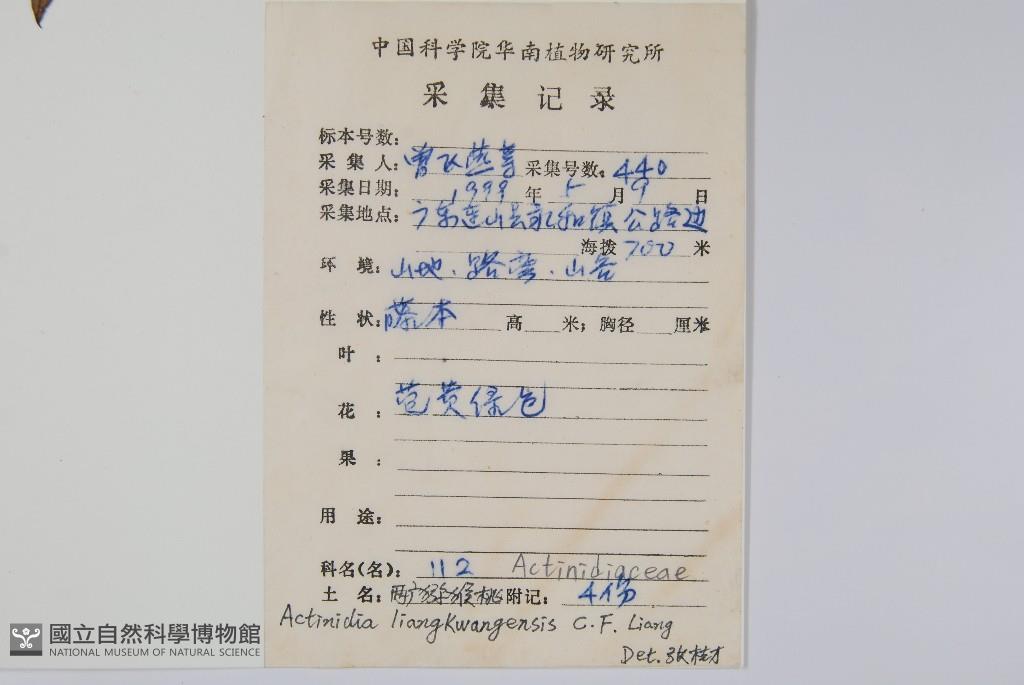 中国科学院华南植物研究所
采集记录
标本号数:
采集人:曾飞燕等 采集号数:440
采集日期: 1999年5月9日
采集地点:广东连山县永和镇公路边
海拨700米
环境:山地、路旁、山谷
性状:藤本 高 米; 胸径 厘米
叶:
花: 黄绿色
果:
用途:
科名(名): 112 Actinidiaceae
土名:两广猕猴桃 附记: 4份
Actinidia liangkwangensis C.F. Liang
Det. 张桂才
國立自然科學博物館
NATIONAL MUSEUM OF NATURAL SCIENCE